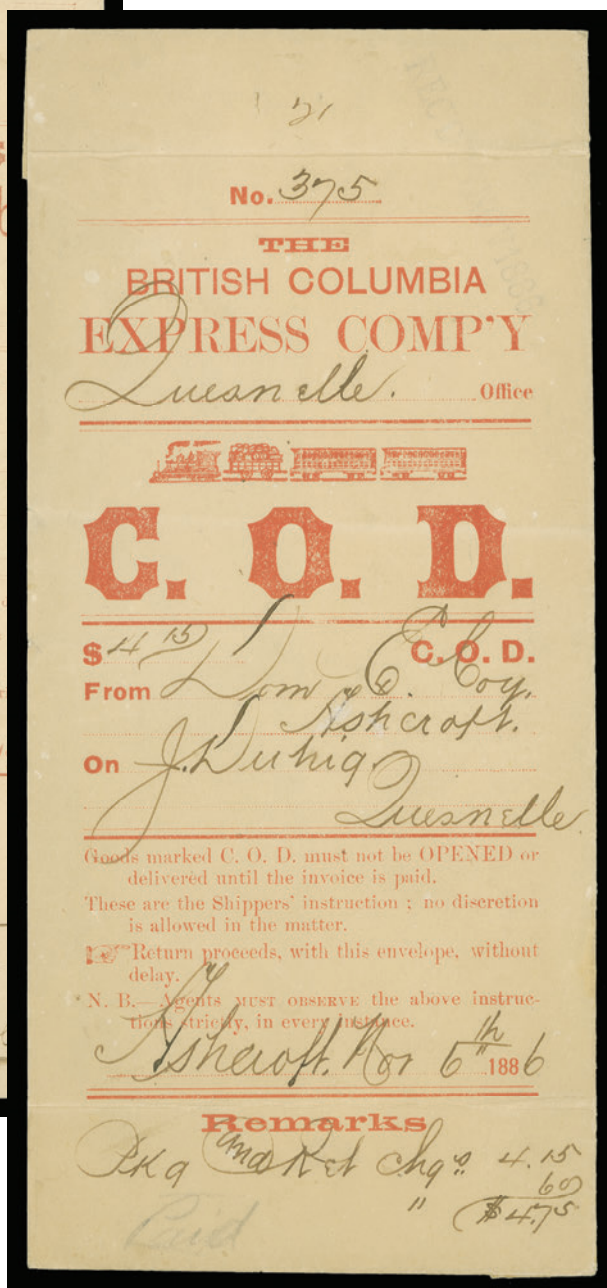 21
No. 375
THE
BRITISH COLUMBIA
EXPRESS COMP'Y
Quesnelle. Office
C. O. D.
$ 4 15 C. O. D.
From Dom E. Coy.
Ashcroft.
On J. Duhig
Quesnelle
Goods marked C. O. D. must not be OPENED or
delivered until the invoice is paid.
These are the Shippers' instruction ; no discretion
is allowed in the matter.
Return proceeds, with this envelope, without
delay.
N. B.—Agents MUST OBSERVE the above instruc-
tions strictly, in every instance.
Ashcroft. Nov 6th 1886
Remarks
Pkg and Ret Chgs 4.15
" 60
$4.75
Paid